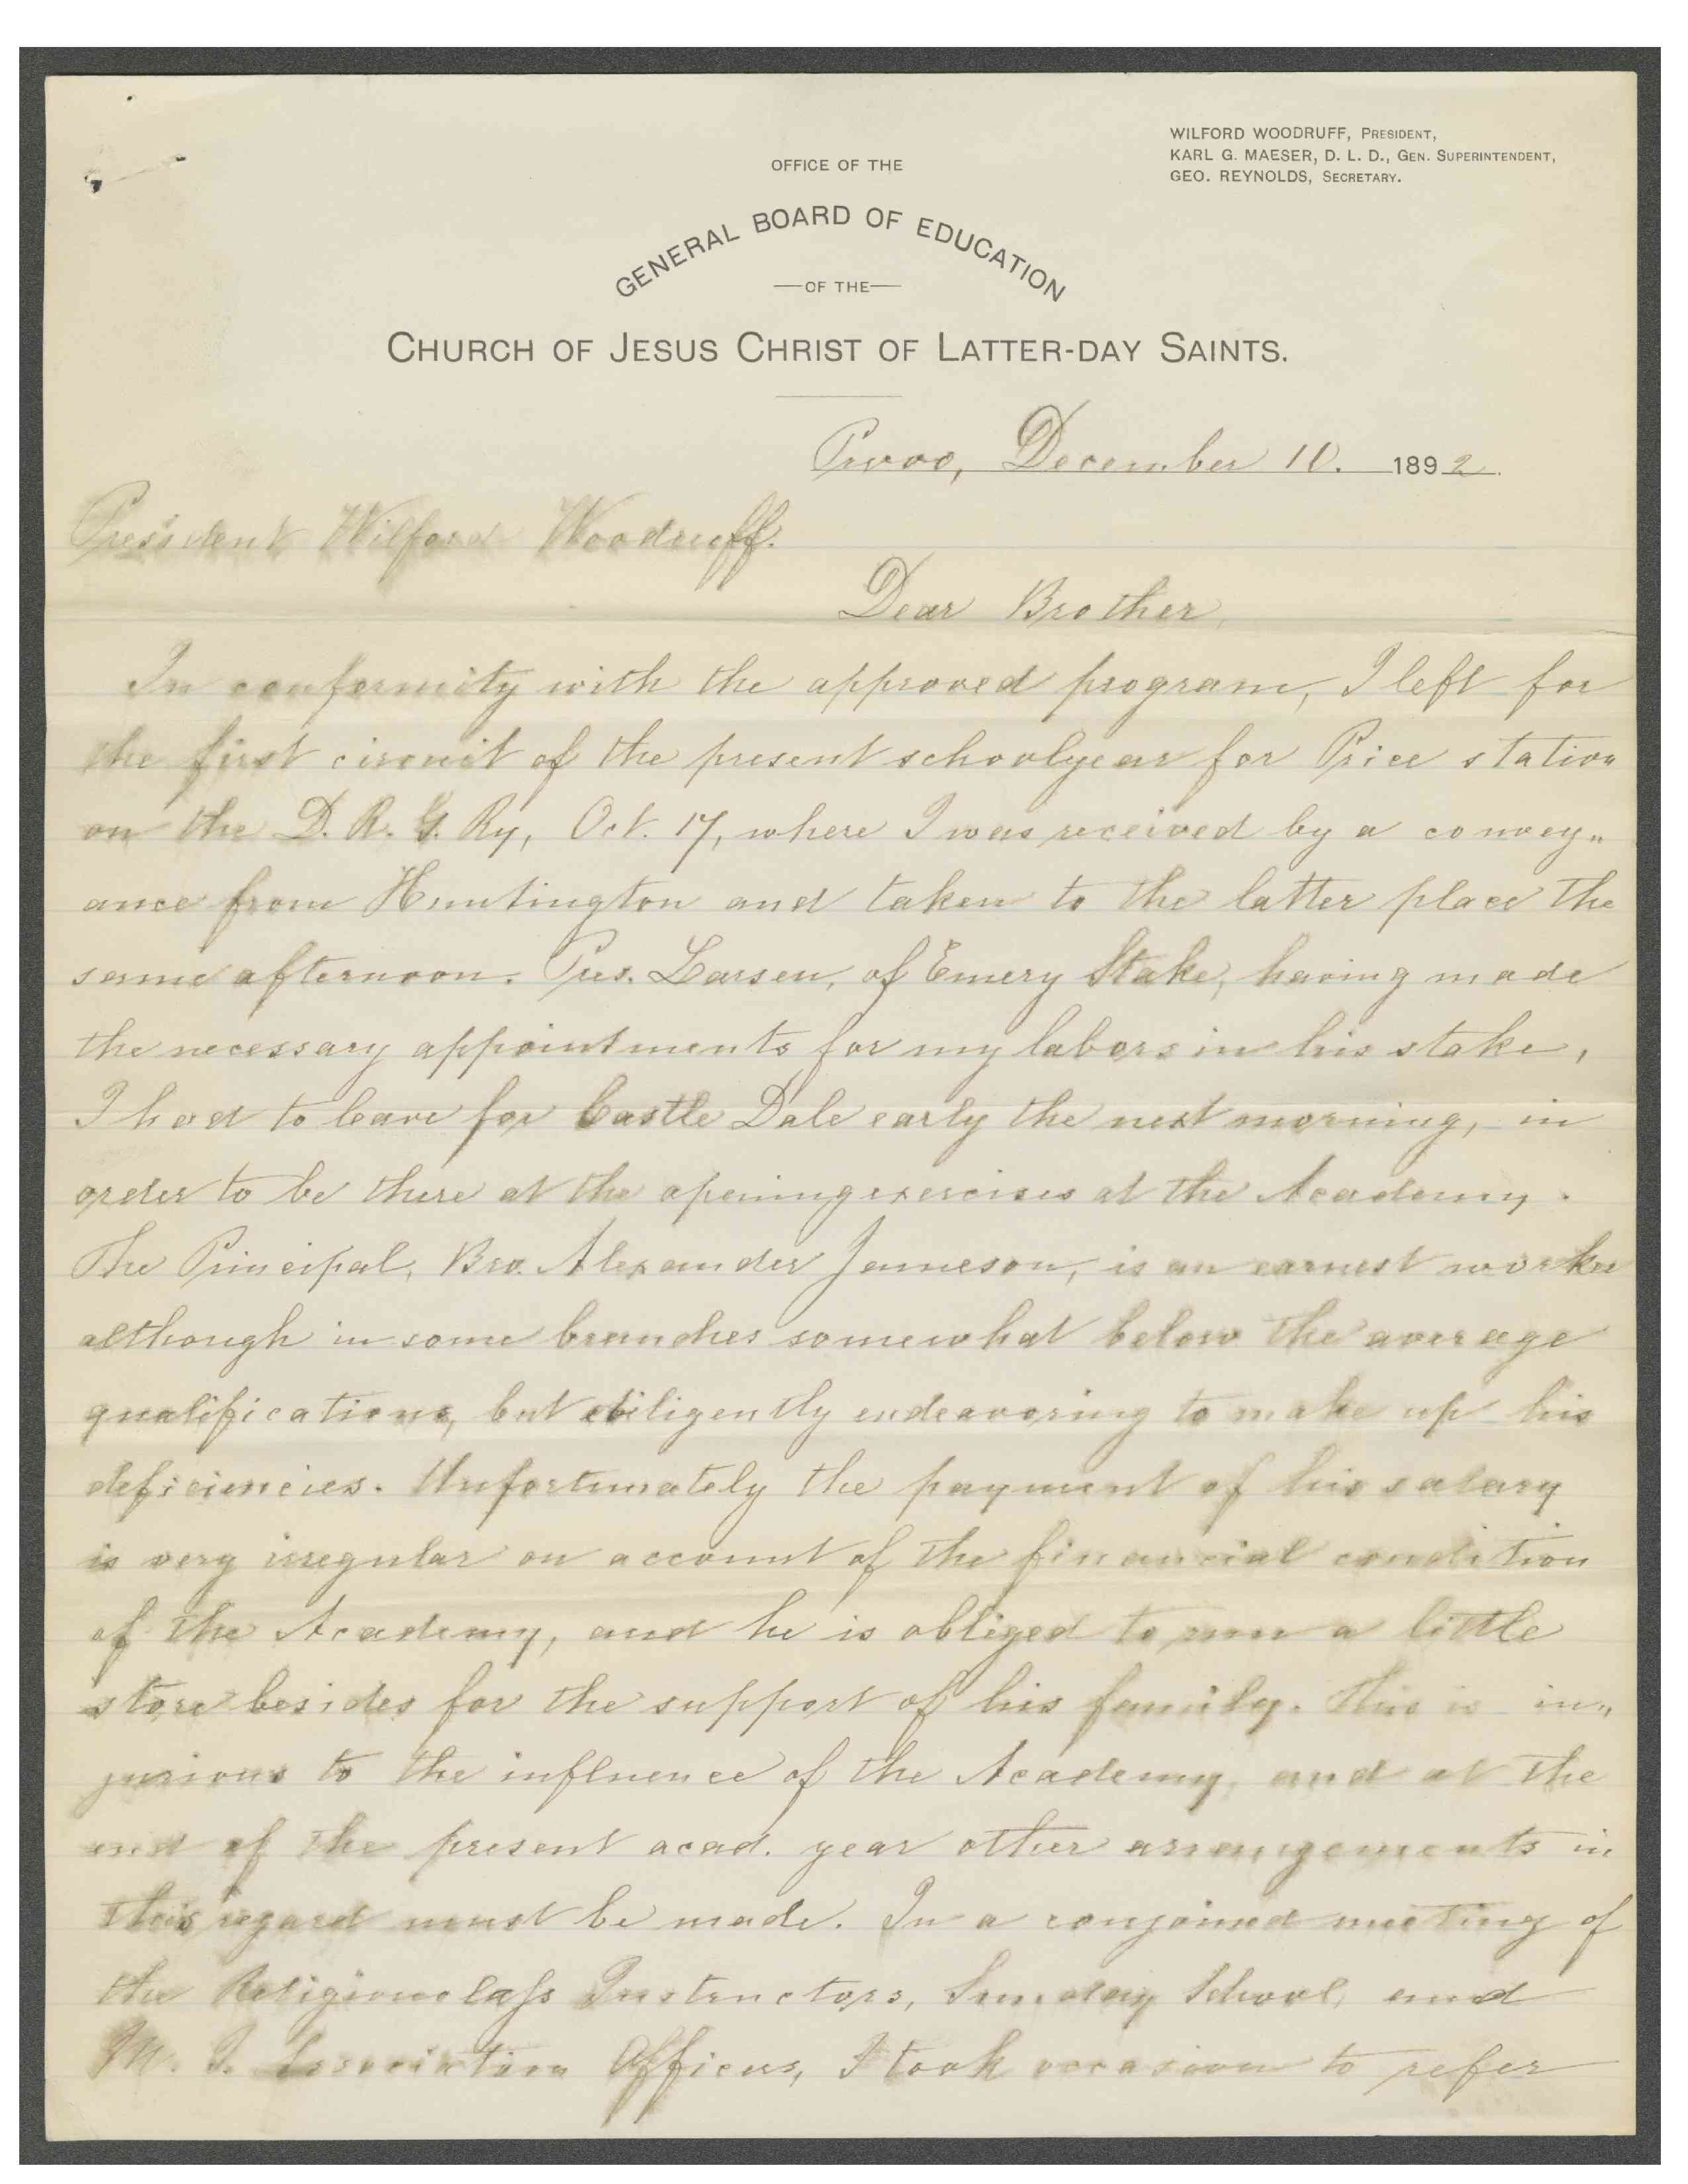 WILFORD WOODRUFF, PRESIDENT,
KARL G. MAESER, D. L. D., GEN. SUPERINTENDENT,
GEO. REYNOLDS, SECRETARY.
OFFICE OF THE
GENERAL BOARD OF EDUCATION
—OF THE—
CHURCH OF JESUS CHRIST OF LATTER-DAY SAINTS.
Provo, December 10. 1892.
President Wilford Woodruff.
Dear Brother,
In conformity with the approved program, I left for
the first circuit of the present schoolyear for Price station
on the D. R. G. Ry, Oct. 17, where I was received by a convey„
ance from Huntington and taken to the latter place the
same afternoon. Pres. Larsen, of Emery Stake, having made
the necessary appointments for my labors in his stake,
I had to leave for Castle Dale early the next morning, in
order to be there at the opening exercises at the Academy.
The Principal, Bro. Alexander Jameson, is an earnest worker
although in some branches somewhat below the average
qualifications, but diligently endeavoring to make up his
deficiencies. Unfortunately the payment of his salary
is very irregular on account of the financial condition
of the Academy, and he is obliged to run a little
store besides for the support of his family. This is in„
jurious to the influence of the Academy, and at the
end of the present acad. year other arrangements in
this regard must be made. In a conjoined meeting of
the Religionclass Instructors, Sunday School, and
M. I. Association Officers, I took occasion to refer